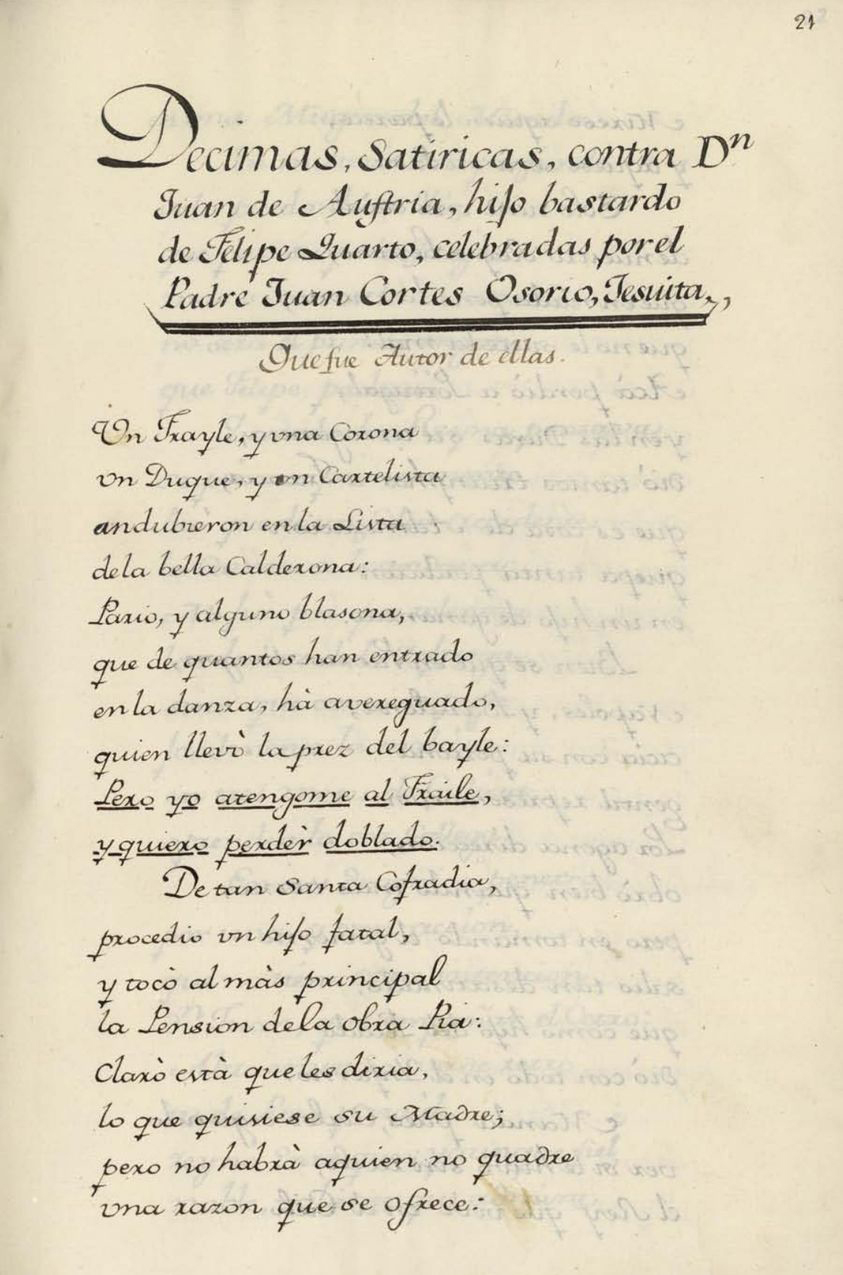 21
Decimas, Satiricas, contra Dn
Juan de Austria, hijo bastardo
de Felipe Quarto, celebradas por el
Padre Juan Cortes Osorio, Jesuita,,
Que fue Autor de ellas.
Un Frayle, y vna Corona
vn Duque, y vn Cartelista
andubieron en la Lista
de la bella Calderona:
Pario, y alguno blasona,
que de quantos han entrado
en la danza, hà avereguado,
quien llevò la prez del bayle:
Pero yo atengome al Fraile,
y quiero perdèr doblado.
De tan Santa Cofradia,
procedio vn hijo fatal,
y tocò al màs principal
la Pension de la obra Pia:
Clarò està que les diria,
lo que quisiese su Madre;
pero no habrà aquien no quadre
vna razon que se ofrece: